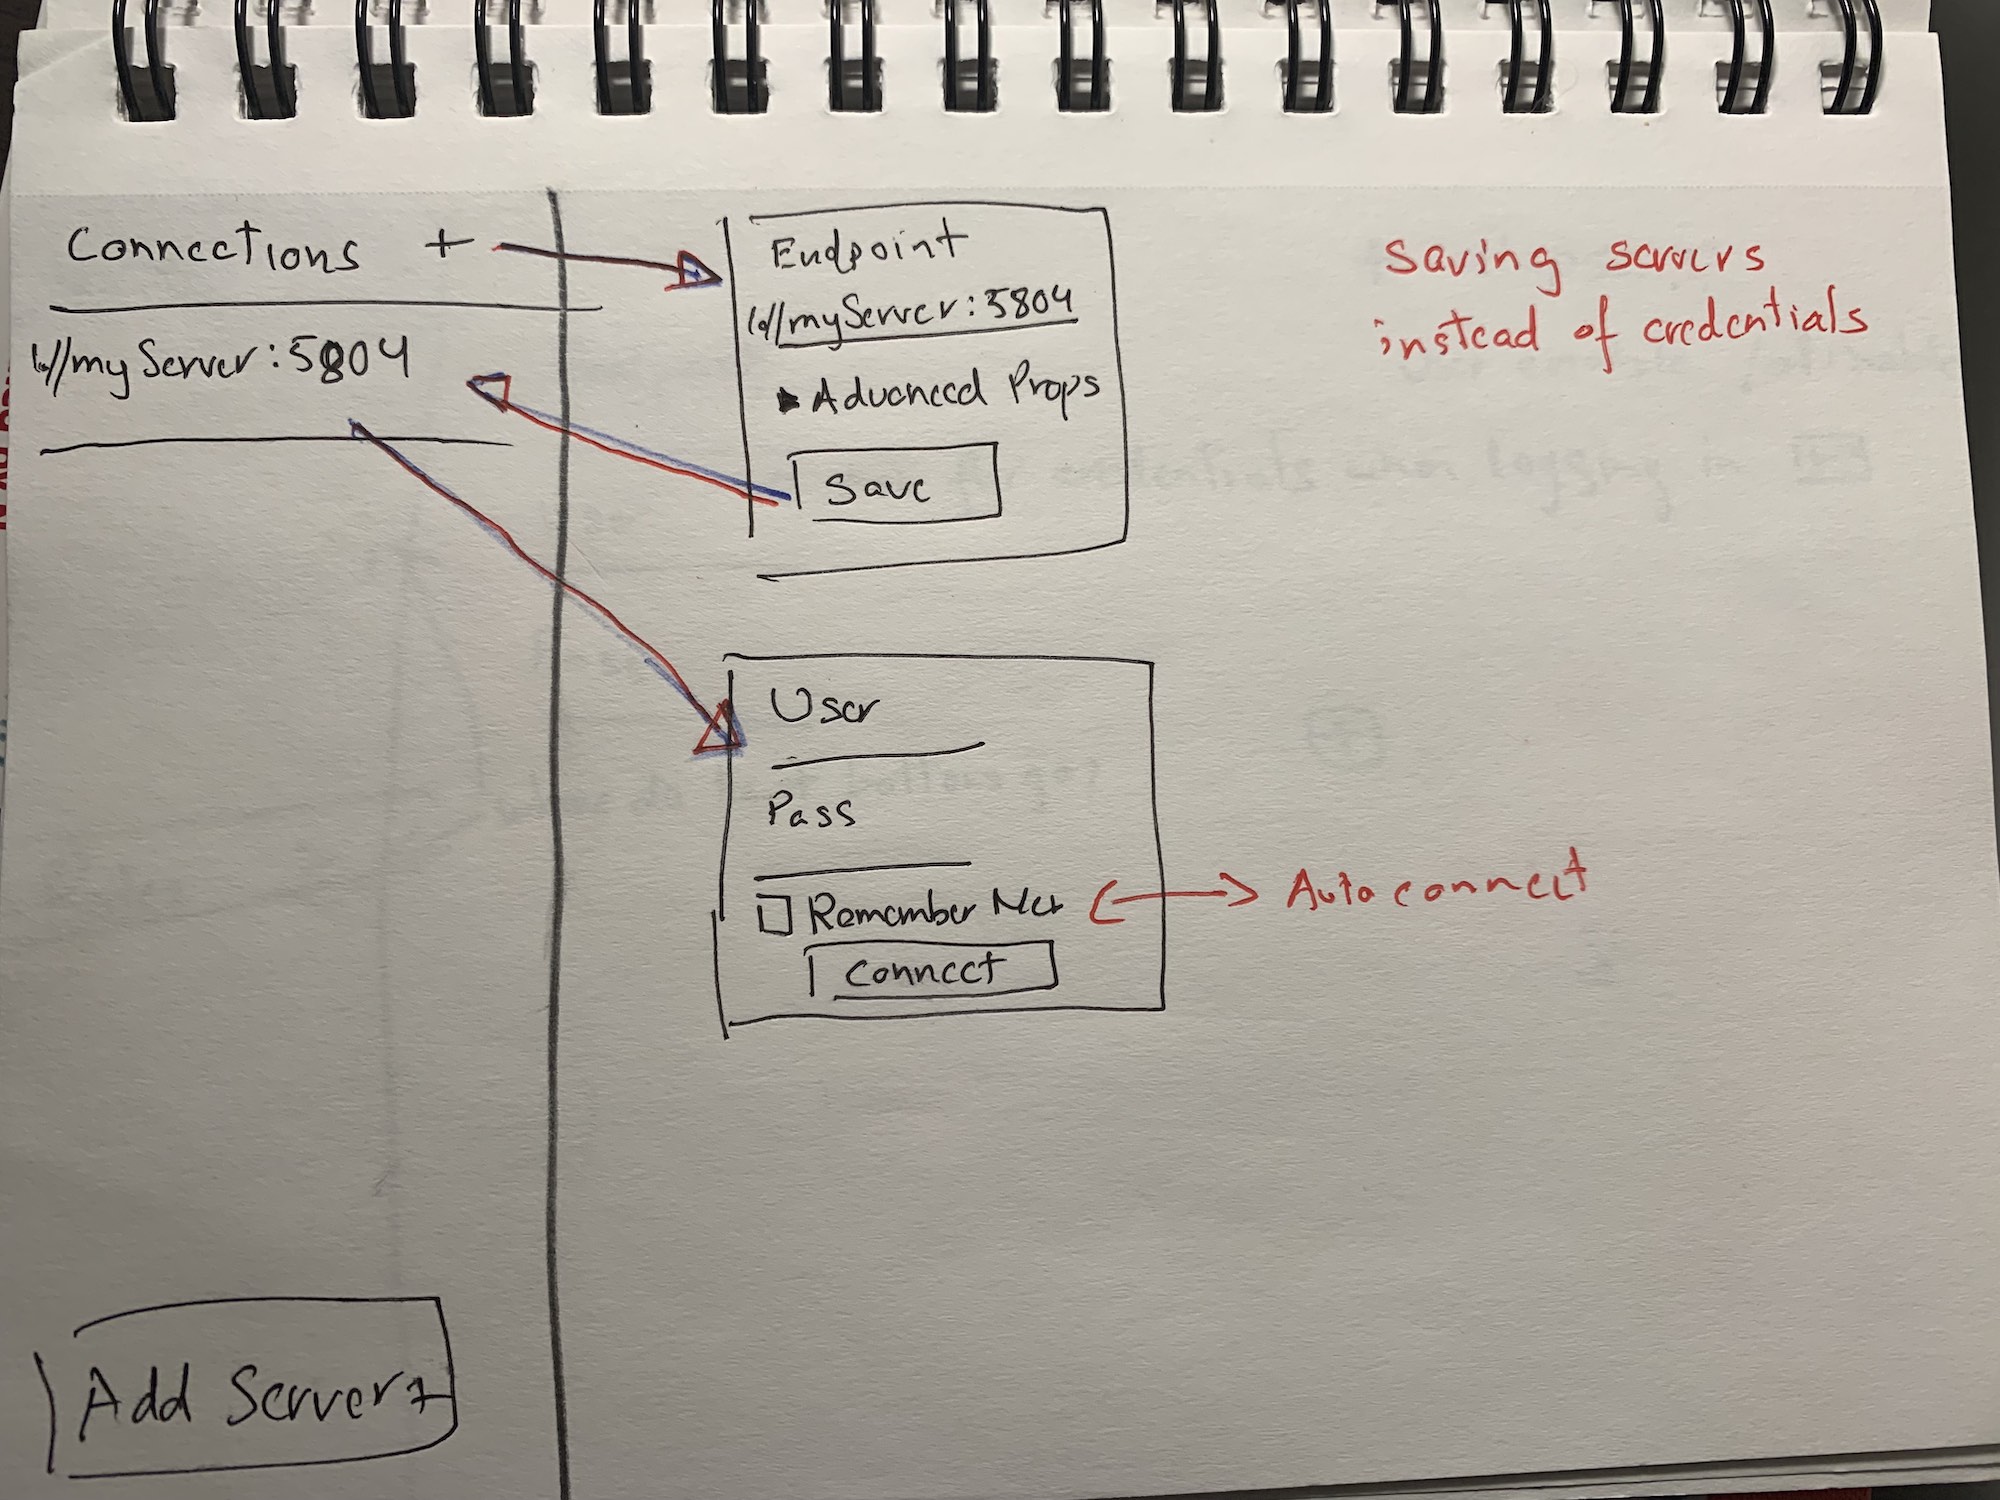 Connections +
://myServer:5804
Add Server +
Endpoint
://myServer:5804
Advanced Props
Save
User
Pass
Remember Me
Connect
Saving servers
instead of credentials
Auto connect